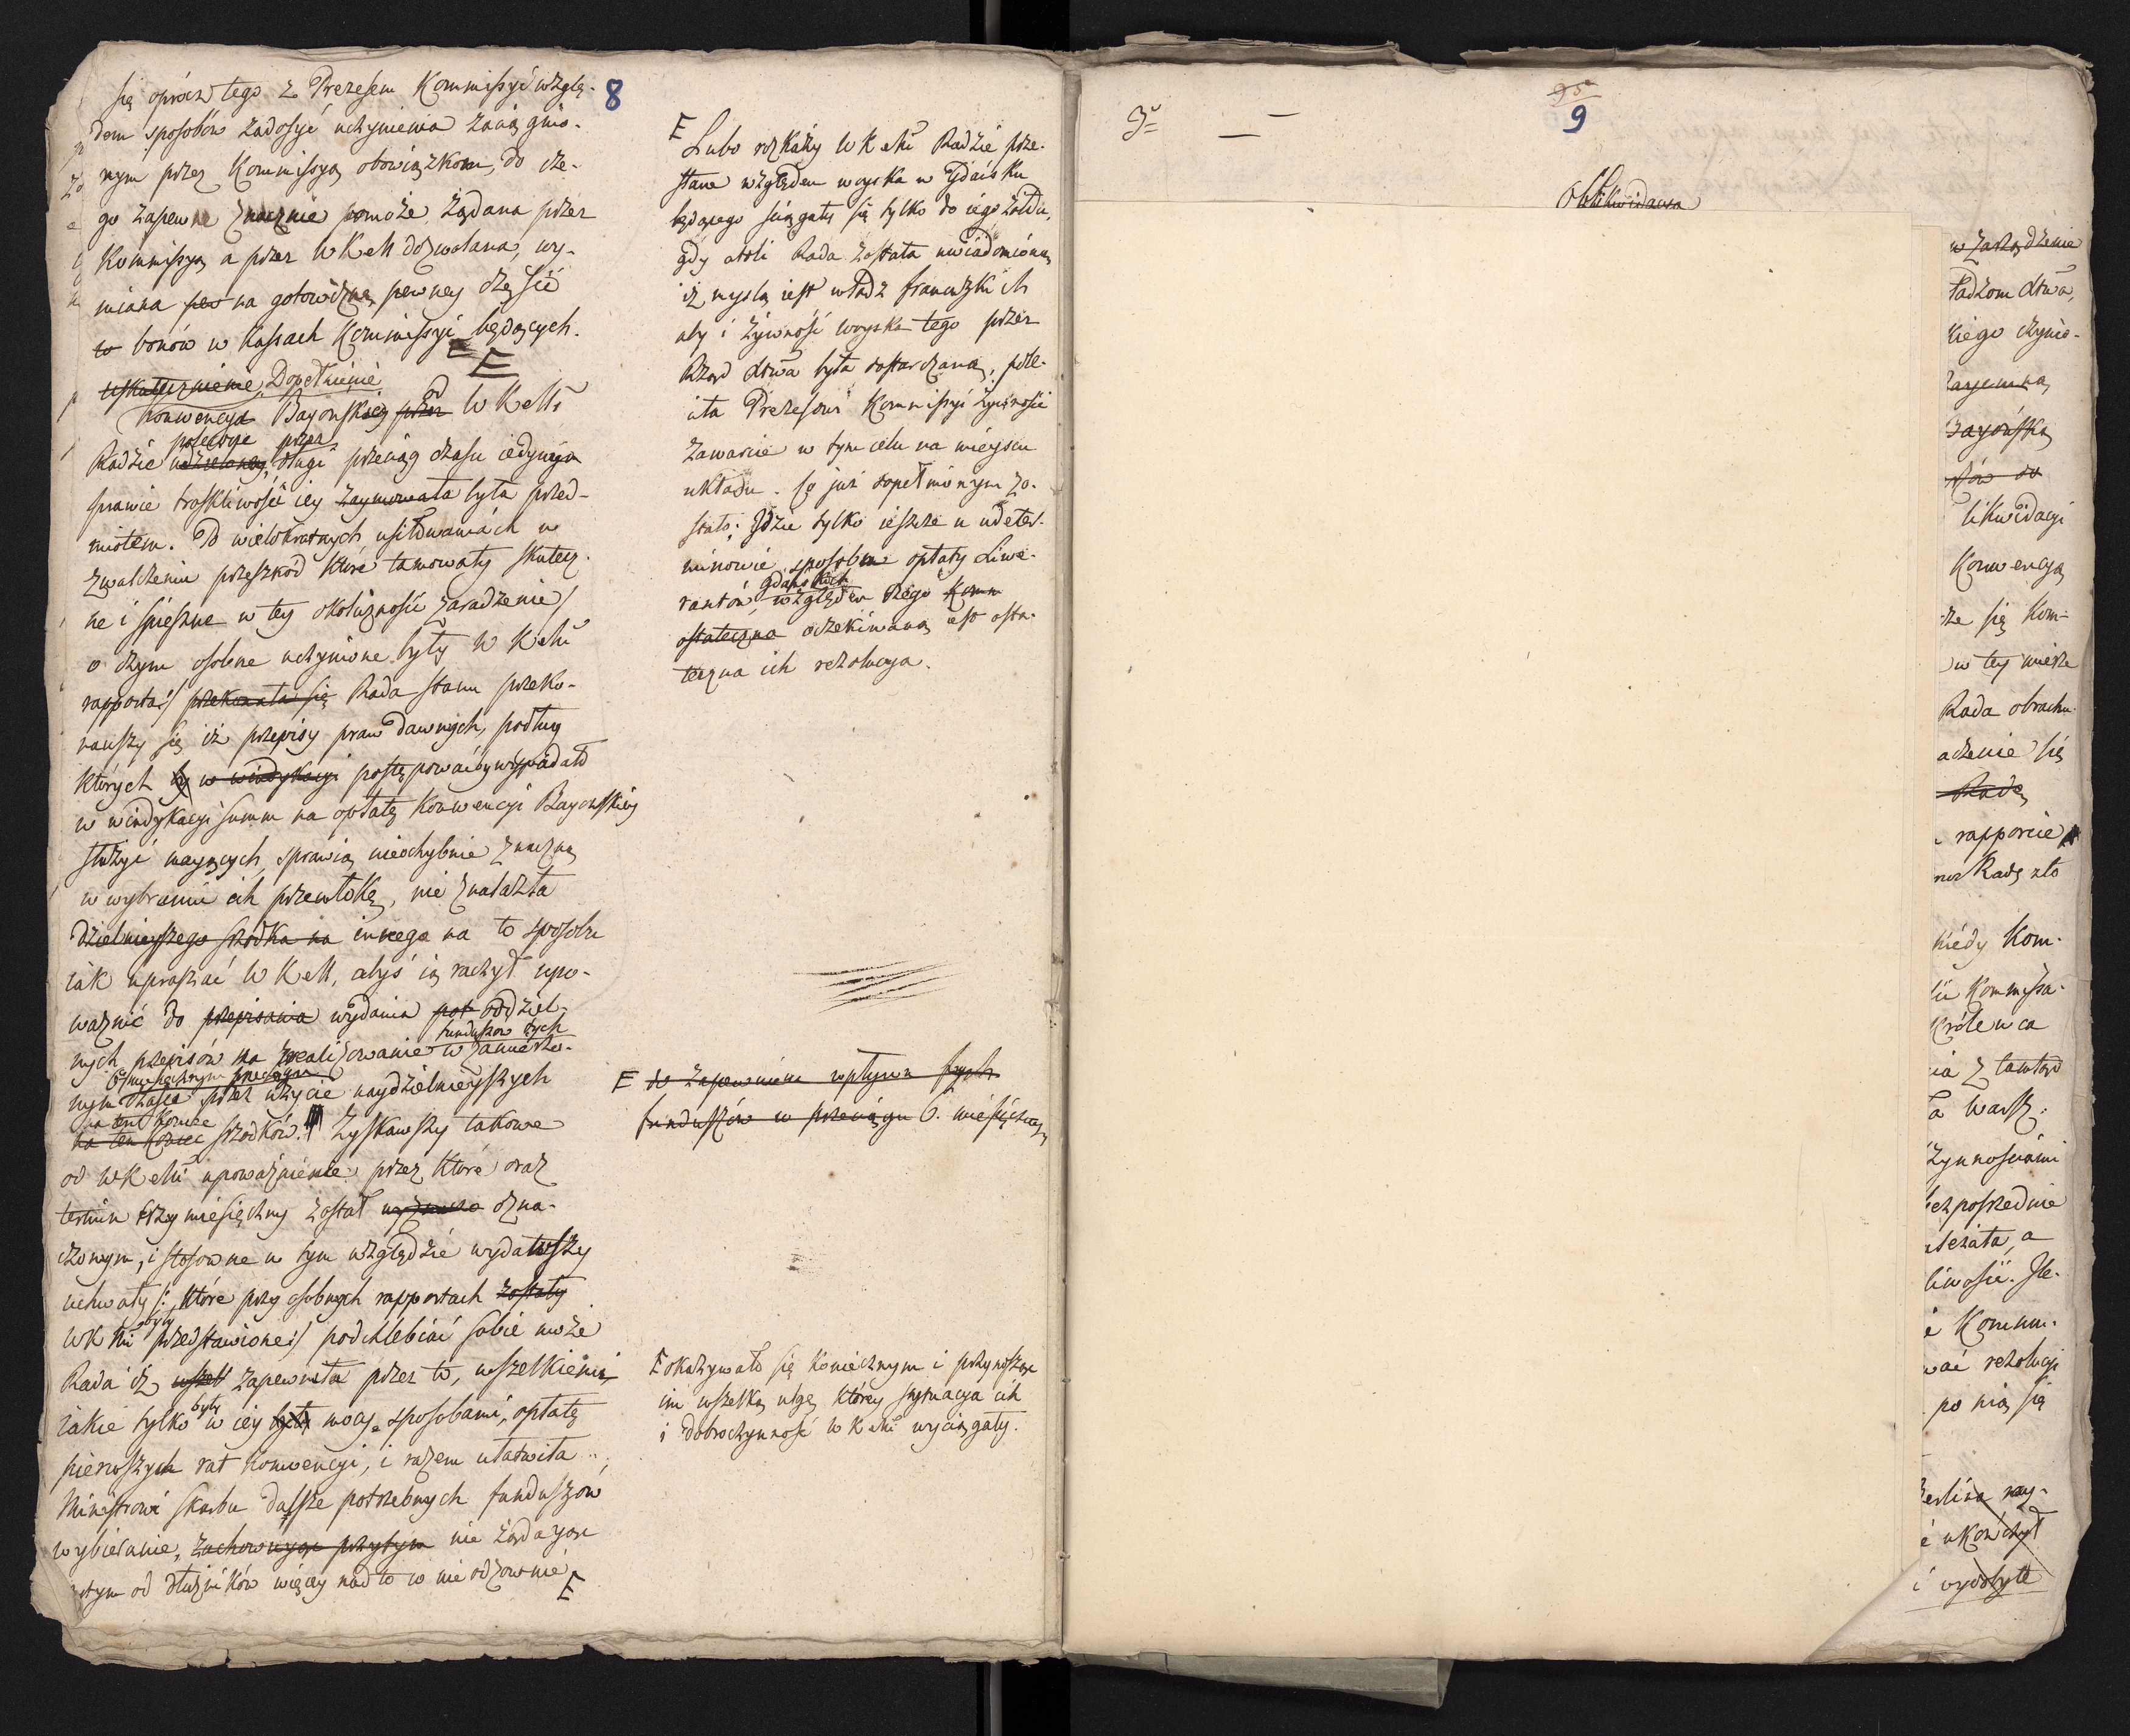 8
się oprócz tego z Prezesem Kommissyi wzglę-
dem sposobów zadosyć uczynienia zaciągnio-
nym przez Kommissyą obowiązkom, do cze-
go zapewne znacznie pomoże żądana przez
Kommissyą a przez WKM dozwolana, wy-
miana pew na gotowiznę pewney części
w bonów w Kassach Kommissyi będących.
E
uskutecznienie Dopełnienie
Konwencyi Bayońskiey przez od WKMci
polecone przez
Radzie udzielaney, długi przeciąg czasu iedynym
prawie troskliwości iey zaymowała była przed-
miotem. Po wielokrotnych usiłowaniach w
zwalczeniu przeszkód które tamowały skutecz-
ne i śpieszne w tey okoliczności zaradzenie/
o czym osobne uczynione były WKMci
rapporta:/ przekonała się Rada Stanu przeko-
nawszy się iż przepisy praw dawnych, podług
których by w windykacyi postępować by wypadało
w windykacyi summ na opłatę Konwencyi Bayońskiey
służyć maiących, sprawią niechybnie znaczną
w wybraniu ich przewłokę, nie znalazła
dzielnieyszego środka na innego na to sposobu
iak upraszać WKM, abyś ią raczył upo-
ważnić do przepisania wydania pot oddziel-
funduszów tych
nych przepisów na zrealizowanie w zamierzo-
nym czasie przez użycie naydzielnieyszych
na ten koniec
na ten koniec środków. Zyskawszy takowe
od WKMci upoważnienie przez które oraz
termin trzymiesięczny został wyznacza ozna-
czonym, i stosowne w tym względzie wydawszy
uchwały /: które przy osobnych rapportach zostały
były
WKMci przedstawione:/ podchlebiać sobie może
Rada iż wszel zapewniła przez to, wszelkiemi
były
iakie tylko w iey były mocy sposobami, opłatę
pierwszych rat Konwencyi, i razem ułatwiła
Ministrowi Skarbu dalsze potrzebnych funduszów
wybieranie, zachowuiąc przytym nie żądaiąc
w tym od dłużników więcey nad to co nieodzownie
E
E
Lubo rozkazy WKMci Radzie prze-
słane względem woyska w Gdańsku
będącego ściągały się tylko do iego żołdu,
gdy atoli Rada została uwiadomioną
iż myślą iest władz francuzkich
aby i żywność woyska tego przez
Rząd dtwa była dostarczana, pole-
ciła Prezesowi Kommissyi żywności
zawarcie w tym celu na mieyscu
układu. Co już dopełnionym zo-
stało; Idzie tylko ieszcze o udeter-
minowie sposobem opłaty Liwe-
Gdańskich
rantów, względem czego Komm
ostateczna oczekiwana iest osta-
teczna ich rezolucya.
E do zapewnienia wpływu tych
funduszów w przeciągu 6. miesięcznym
E okazywało się koniecznym i przynosząc
im wszelką ulgę, którey sytuacya ich
i dobroczynność WKMci wyciągały.
9
w zarządzenie
ładzom dtwa,
kiego czynio-
likwidacyi
Konwencyą
że się Kom-
w tey mierze
Rada obrachu-
adzenie się
Radę
rapporcie
kiedy Kom-
Kommissa-
Królewca
ia z tamtąd
a Warsz:
zynnościami
bezpośrednie
leżała, a
liwości. Jle-
Kommu-
wać rezolucyi
po nią się
Berlina nay-
ukończył
i wydobyte